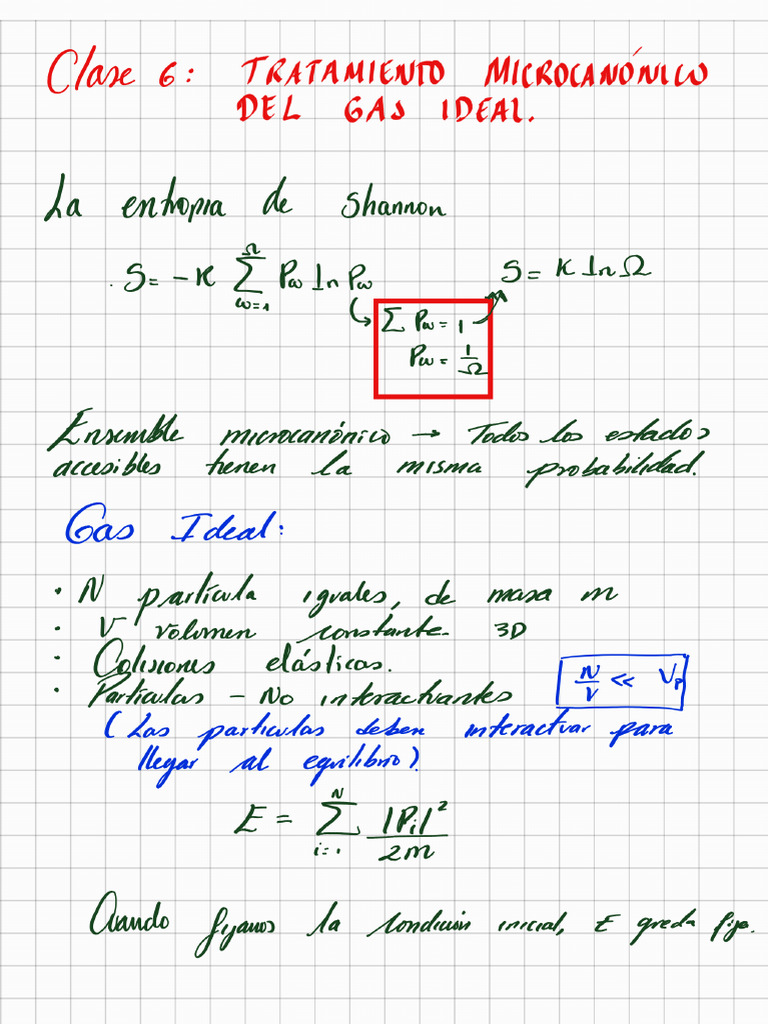 Clase 6: TRATAMIENTO MICROCANÓNICO
DEL GAS IDEAL.
La entropia de Shannon
S = -K ∑_{ω=1}^{Ω} Pω ln Pω
S = K ln Ω
∑ Pω = 1
Pω = 1/Ω
Ensemble microcanónico → Todos los estados
accesibles tienen la misma probabilidad.
Gas Ideal:
• N partícula iguales, de masa m
• V volumen constante. 3D
• Colisiones elásticas.
• Partículas - No interactuantes
N/V << Vp
(Las partículas deben interactuar para
llegar al equilibrio)
E = ∑_{i=1}^{N} |Pi|²/2m
Cuando fijamos la condición inicial, E queda fija.